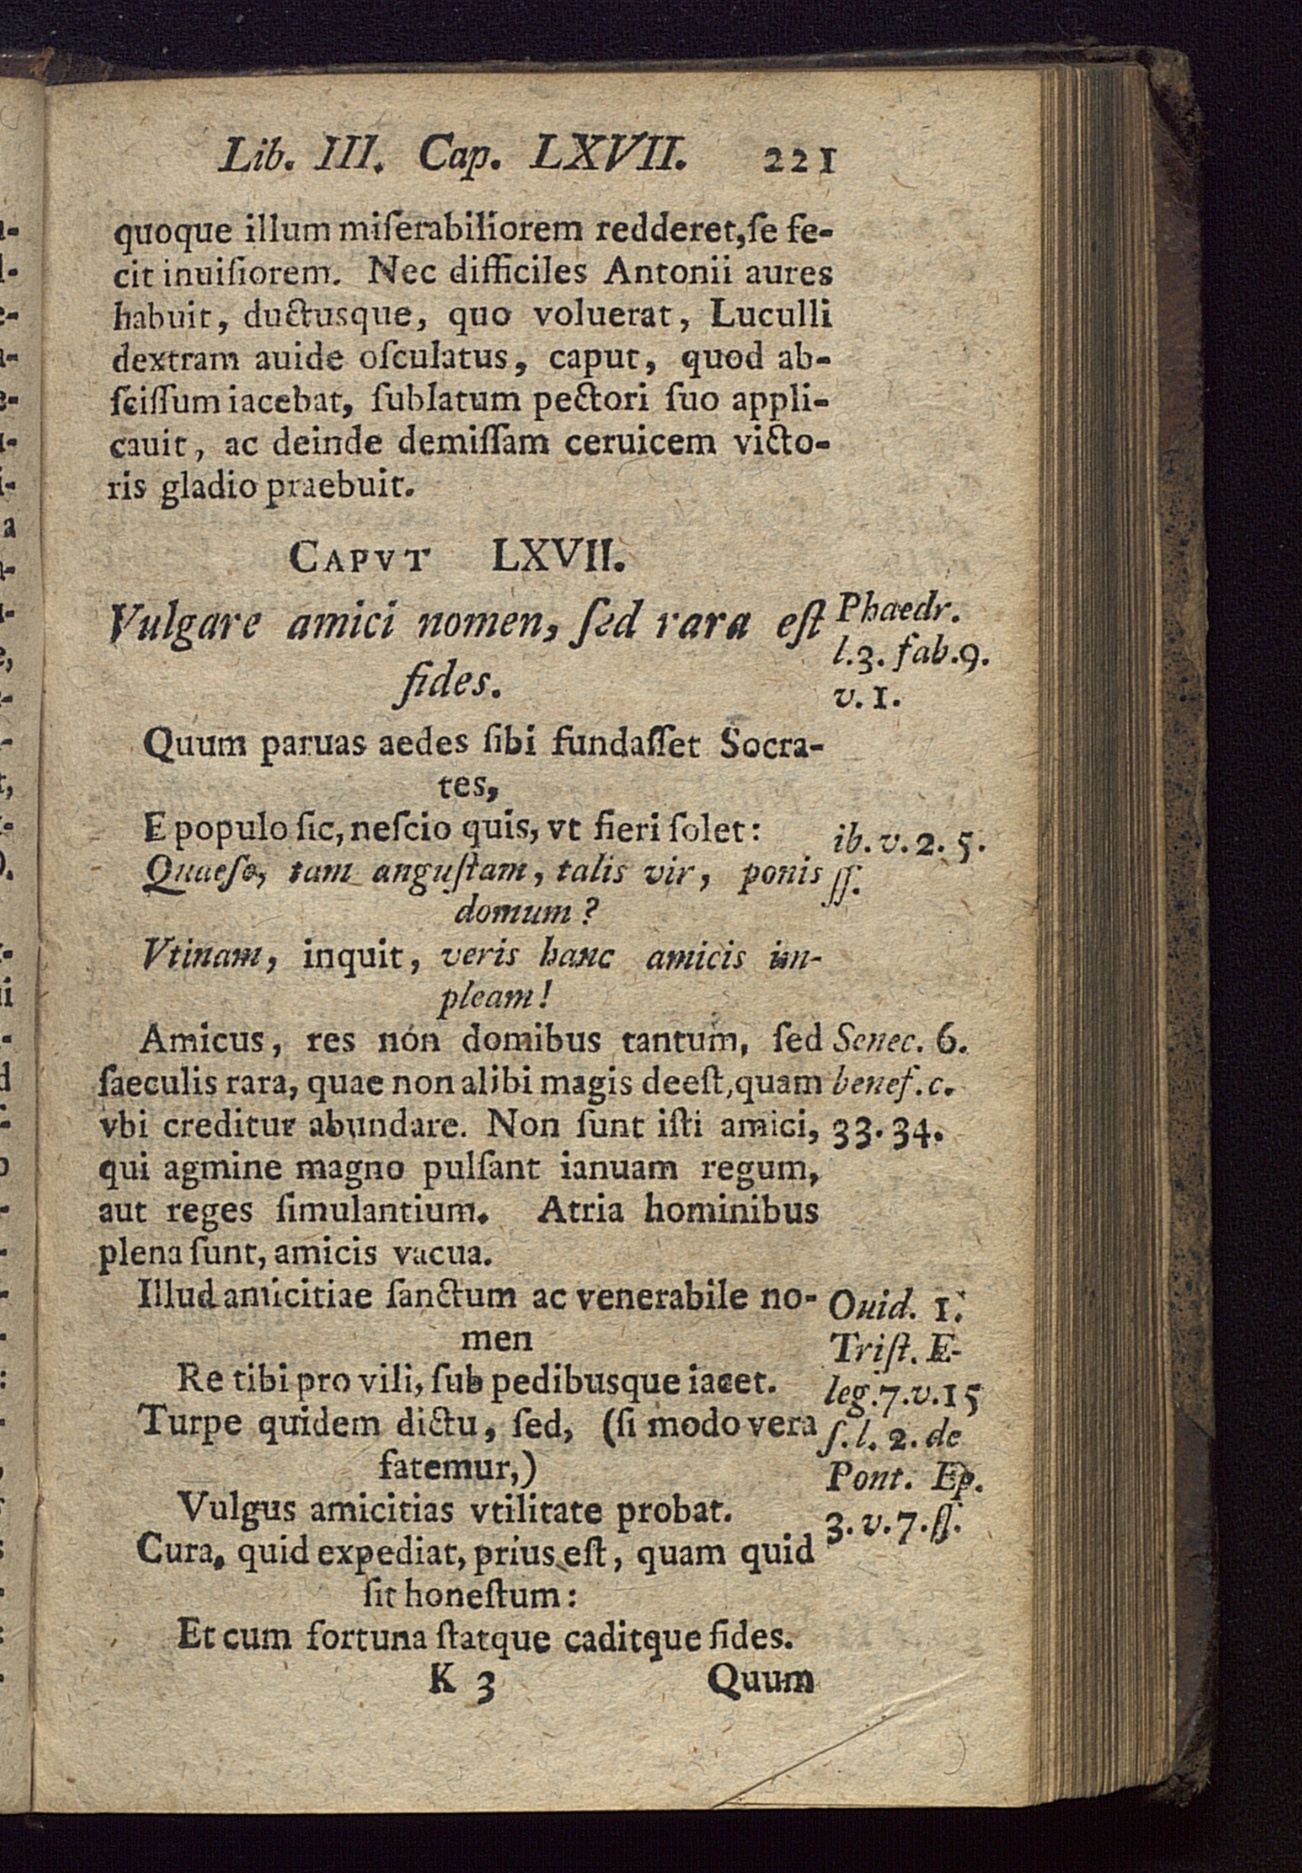 Lib. III. Cap. LXVII. 221
quoque illum miſerabiliorem redderet, ſe fe-
cit inuiſiorem. Nec difficiles Antonii aures
habuit, ductusque, quo voluerat, Luculli
dextram auide oſculatus, caput, quod ab-
ſciſſum iacebat, ſublatum pectori ſuo appli-
cauit, ac deinde demiſſam ceruicem victo-
ris gladio praebuit.
CAPVT LXVII.
Vulgare amici nomen, ſed rara eſt
fides.
Phaedr.
l.3. fab.9.
v. 1.
Quum paruas aedes ſibi fundaſſet Socra-
tes,
E populo ſic, neſcio quis, vt fieri ſolet:
Quaeſo, tam anguſtam, talis vir, ponis
domum?
ib. v. 2. 5.
ſſ.
Vtinam, inquit, veris hanc amicis im-
pleam!
Amicus, res non domibus tantum, ſed
ſaeculis rara, quae non alibi magis deeſt, quam
vbi creditur abundare. Non ſunt iſti amici,
qui agmine magno pulſant ianuam regum,
aut reges ſimulantium. Atria hominibus
plena ſunt, amicis vacua.
Senec. 6.
benef. c.
33. 34.
Illud amicitiae ſanctum ac venerabile no-
men
Re tibi pro vili, ſub pedibusque iacet.
Turpe quidem dictu, ſed, (ſi modo vera
fatemur,)
Vulgus amicitias vtilitate probat.
Cura, quid expediat, prius eſt, quam quid
ſit honeſtum:
Et cum fortuna ſtatque caditque fides.
Ouid. 1.
Triſt. E-
leg. 7. v. 15
ſ. l. 2. de
Pont. Ep.
3. v. 7. ſſ.
K 3 Quum